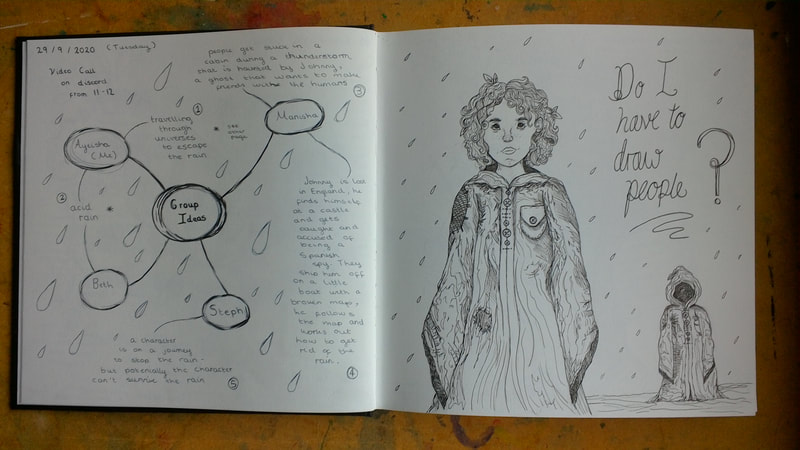 29/9/2020 (Tuesday)
Video Call
on discord
from 11-12
people get stuck in a
cabin during a thunderstorm
that is haunted by Johnny,
a ghost that wants to make
friends with the humans
③
①
travelling
through
universes
to escape
the rain
* see
other
page
Manisha
Ayeisha
(Me)
②
acid
rain *
Group
Ideas
Beth
Steph
Johnny is lost
in England, he
finds himself
at a castle
and gets
caught and
accused of
being a
Spanish
spy. They
ship him off
on a little
boat with a
broken map,
he follows
the map and
works out
how to get
rid of the
rain.
④
a character
is on a journey
to stop the rain -
but potentially the character
can't survive the rain
⑤
Do I
have to
draw
people
?